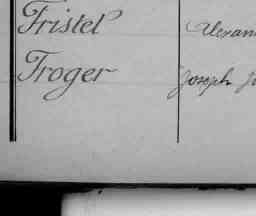 Fristel Alexan
Troger Joseph Jo